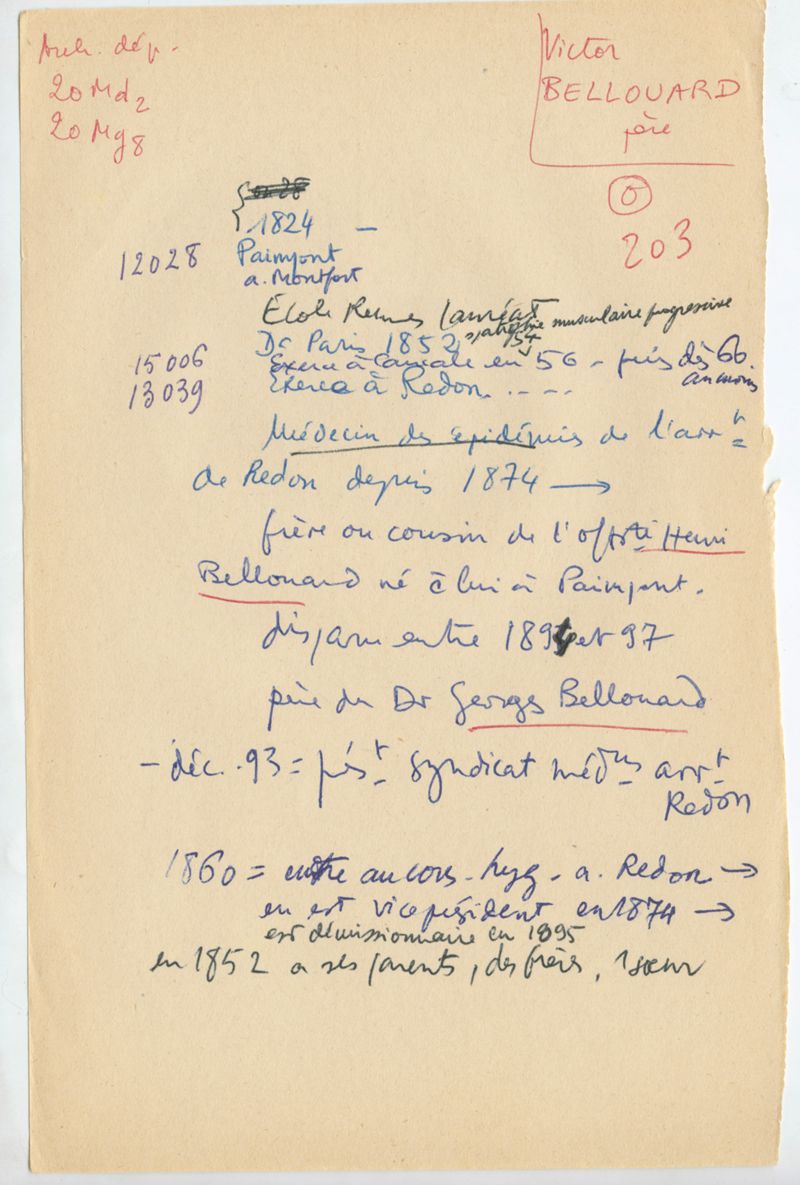 Arch. dép.
20 Md2
20 Mg8
Victor
BELLOUARD
père
0
203
1824 —
12028 Paimpont
a. Montfort
École Rennes lauréat
Dr Paris 1852, s/atrophie musculaire progressive
54
15006 Exerce à Cancale en 56 – puis dès 66
au moins
13039 Exerce à Redon . - - -
Médecin des épidémies de l'arrt
de Redon depuis 1874 →
frère ou cousin de l'offr té Henri
Bellouard né c lui à Paimpont.
disparu entre 1894 et 97
père du Dr Georges Bellouard
– déc. 93 = prést Syndicat médns arrt
Redon
1860 = entre au cons. hyg. a. Redon →
en est vice président en 1874 →
est démissionnaire en 1895
en 1852 a ses parents, des frères, 1 sœur